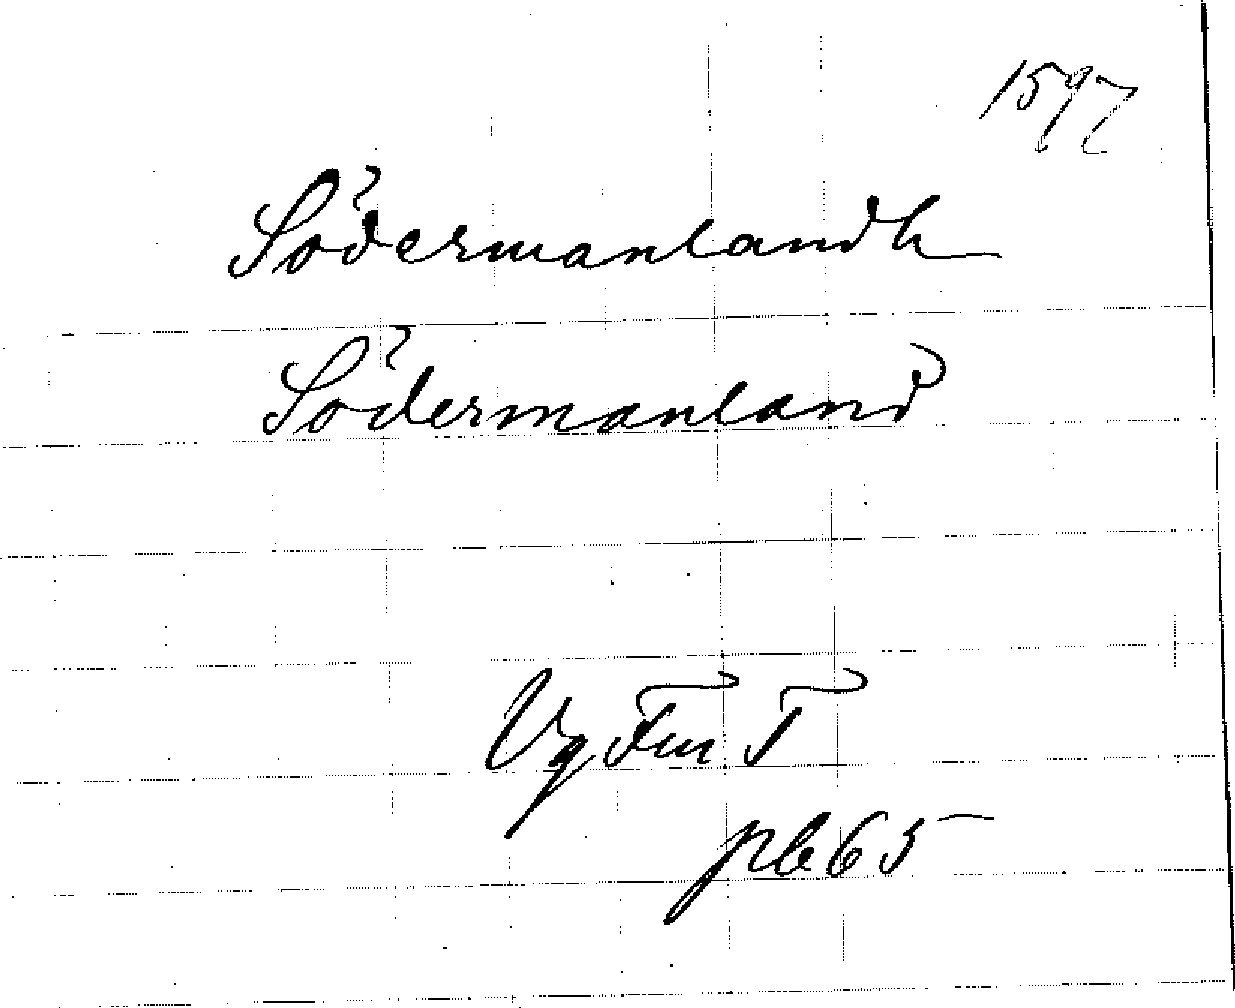 1597
Södermanlandh
Södermanland
Vg Fm T
pb 65